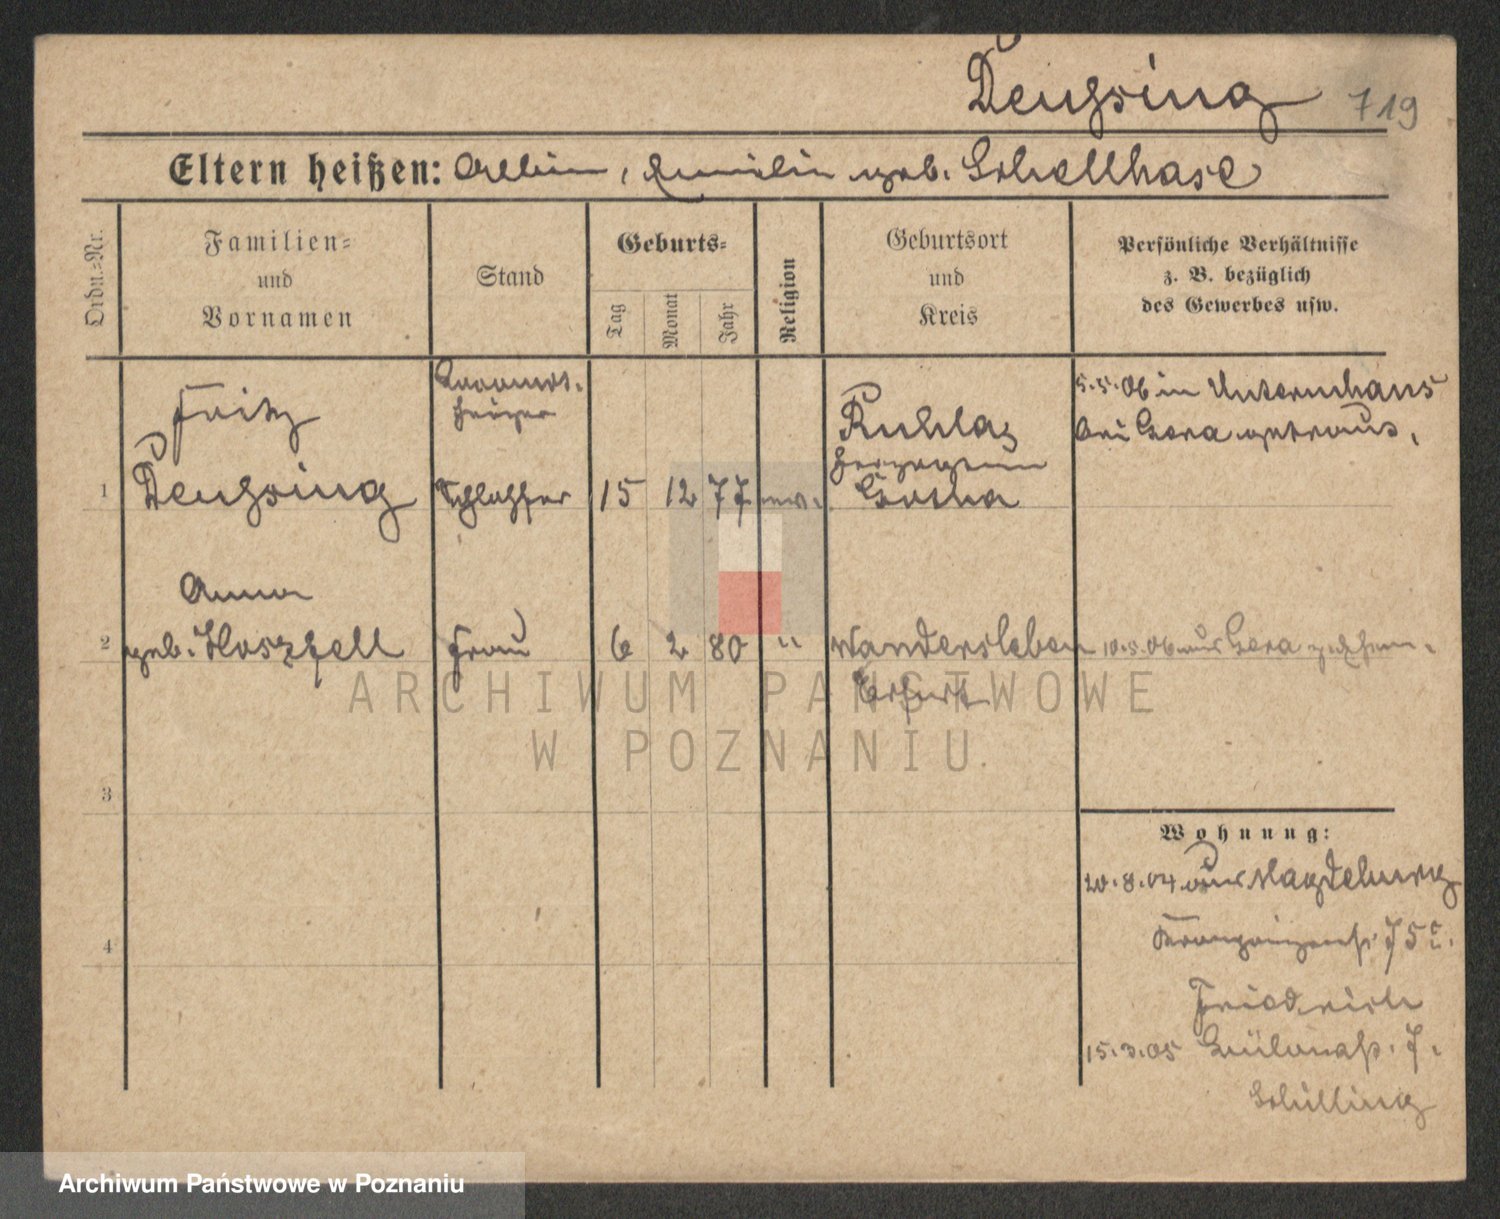 Deußing 719
Eltern heißen: Albin, Emilie geb. Schellhase
Ordn.=Nr.
Familien=
und
Vornamen
Stand
Geburts=
Tag
Monat
Jahr
Religion
Geburtsort
und
Kreis
Persönliche Verhältnisse
z. B. bezüglich
des Gewerbes usw.
1
Fritz
Deußing
heizer
Schlosser
15 12 77 ev.
Ruhla
Herzogtum
Gotha
5.5.06 in Untermhaus
bei Gera getraut.
2
Anna
geb. Hoszfell
Frau
6 2 80 "
Wandersleben
Erfurt
10.5.06 aus Gera
3
4
Wohnung:
20.8.04 aus Magdeburg
Kronprinzenstr. 75
Friedrich
15.3.05 7.
Schilling
ARCHIWUM PAŃSTWOWE
W POZNANIU
Archiwum Państwowe w Poznaniu